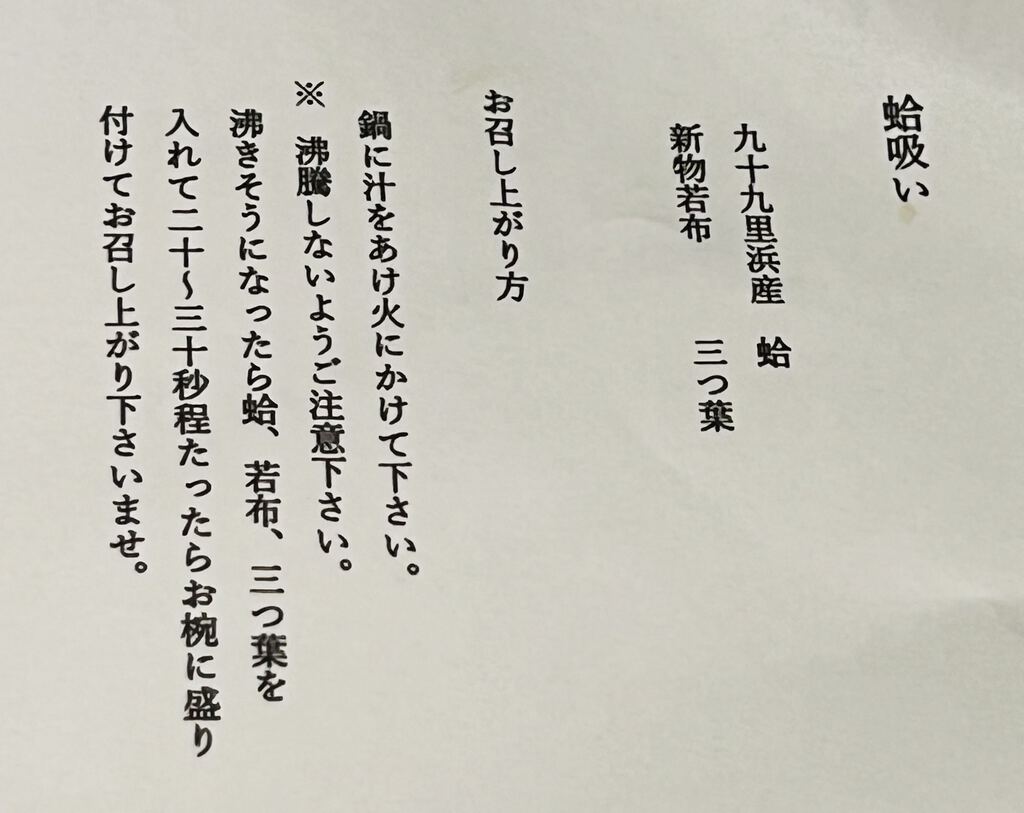 蛤吸い
九十九里浜産　蛤
新物若布　三つ葉
お召し上がり方
鍋に汁をあけ火にかけて下さい。
※　沸騰しないようご注意下さい。
沸きそうになったら蛤、若布、三つ葉を
入れて二十～三十秒程たったらお椀に盛り
付けてお召し上がり下さいませ。